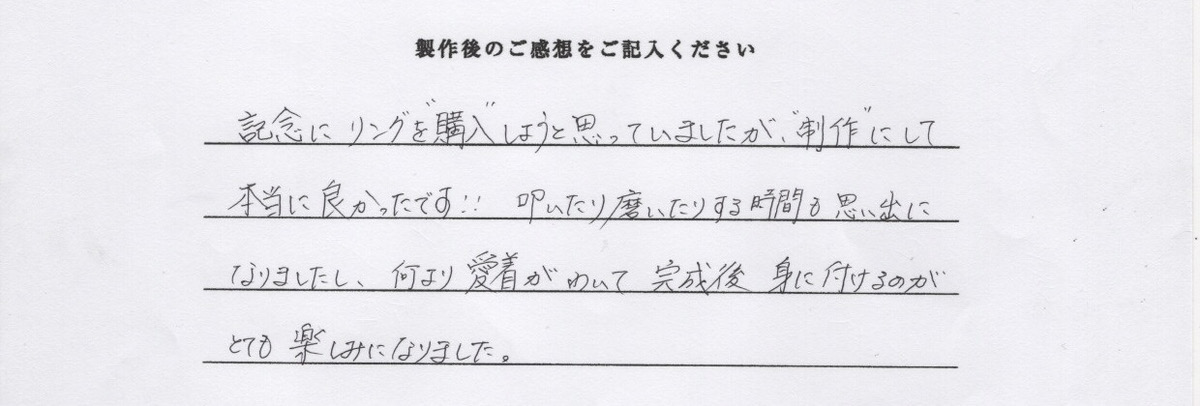 製作後のご感想をご記入ください
記念にリングを"購入"しようと思っていましたが、"制作"にして
本当に良かったです!! 叩いたり磨いたりする時間も思い出に
なりましたし、何より愛着がわいて完成後身に付けるのが
とても楽しみになりました。